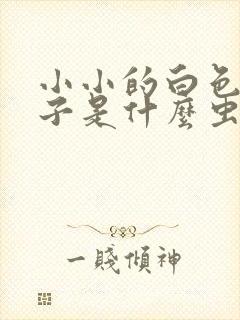 小小的白色
子是什麼虫
一賤傾神